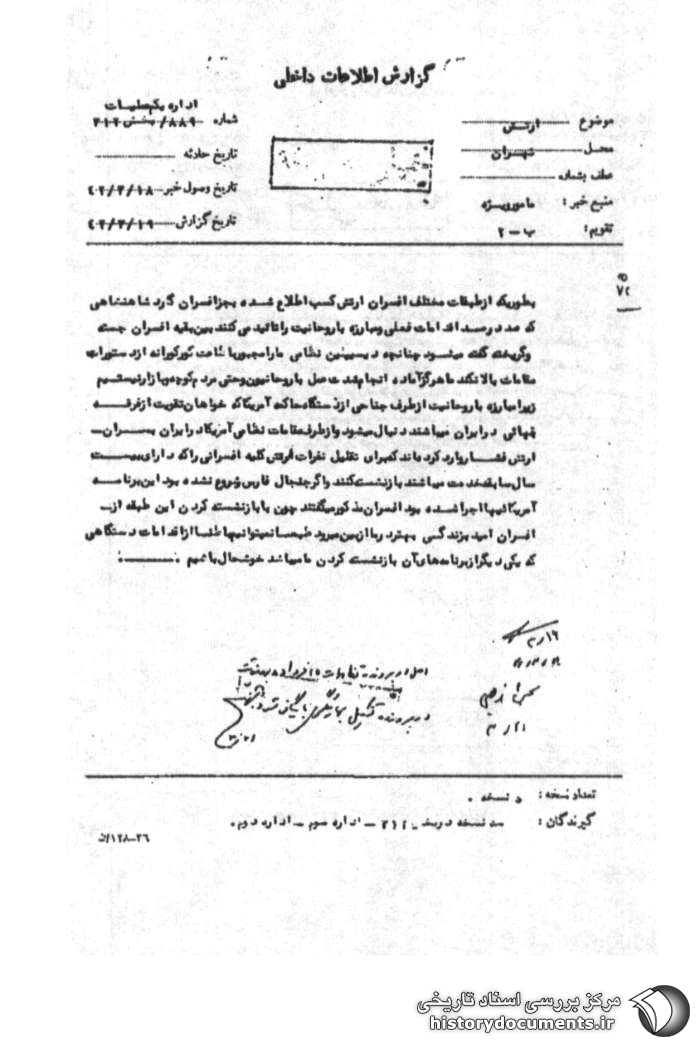 گزارش اطلاعات داخلی
اداره یکم عملیات
موضوع ارتش
شماره ۸۸۹/ بخش ۳۱۲
محل تهران
تاریخ حادثه
عطف بشماره
تاریخ وصول خبر ۴۲/۳/۱۸
منبع خبر : مامور ویژه
تاریخ گزارش ۴۲/۳/۱۹
تقویم : ب - ۲
۷۲
بطوریکه از طبقات مختلف افسران ارتش کسب اطلاع شده بجز افسران گارد شاهنشاهی
که صد درصد اقدامات فعلی و مبارزه با روحانیت را تائید می کنند بین بقیه افسران جسته
و گریخته گفته میشود چنانچه دیسیپلین نظامی ما را مجبور باطاعت کورکورانه از دستورات
مقامات بالا نکند ما هرگز آماده انجام شدت عمل با روحانیون و حتی مردم کوچه و بازار نیستیم
زیرا مبارزه با روحانیت از طرف جناحی از دستگاه حاکمه آمریکا که خواهان تقویت از فرقه
بهائی در ایران میباشند دنبال میشود و از طرف مقامات نظامی آمریکا در ایران به سران
ارتش فشار وارد کرده اند که برای تقلیل نفرات ارتش کلیه افسرانی را که دارای بیست
سال سابقه خدمت میباشند بازنشسته کنند و اگر جنجال فارس شروع نشده بود این برنامه
آمریکائیها اجرا شده بود افسران مذکور میگفتند چون با بازنشسته کردن این طبقه از
افسران امید بزندگی بهتر در ما از بین میرود طبعا نمیتوانیم باطنا از اقدامات دستگاهی
که یکی دیگر از برنامه های آن بازنشسته کردن ما میباشد خوشحال باشیم .
۱۶/۳
۳/۲۱
تعداد نسخه : ۵ نسخه .
گیرندگان : سه نسخه در بخش ۳۱۲ - اداره سوم - اداره دوم .
۱۲۸-۳۶/ن
مرکز بررسی اسناد تاریخی
historydocuments.ir